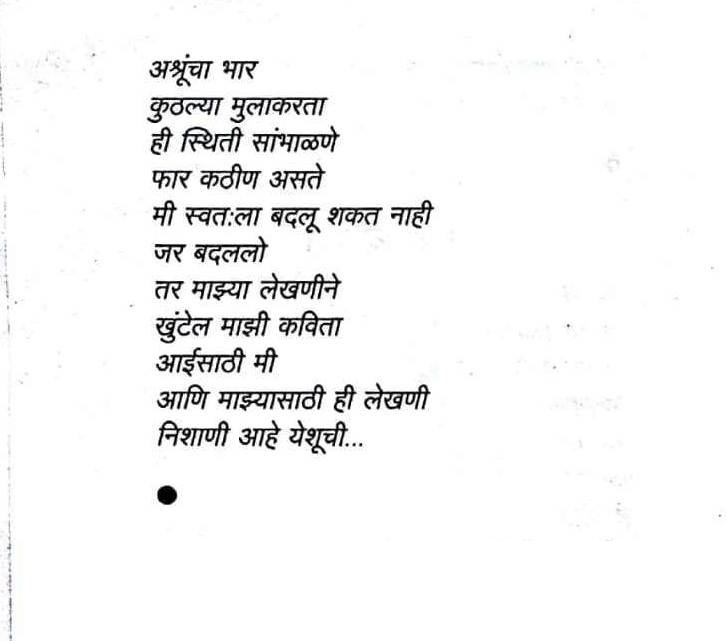 अश्रूंचा भार
कुठल्या मुलाकरता
ही स्थिती सांभाळणे
फार कठीण असते
मी स्वत:ला बदलू शकत नाही
जर बदललो
तर माझ्या लेखणीने
खुंटेल माझी कविता
आईसाठी मी
आणि माझ्यासाठी ही लेखणी
निशाणी आहे येशूची...